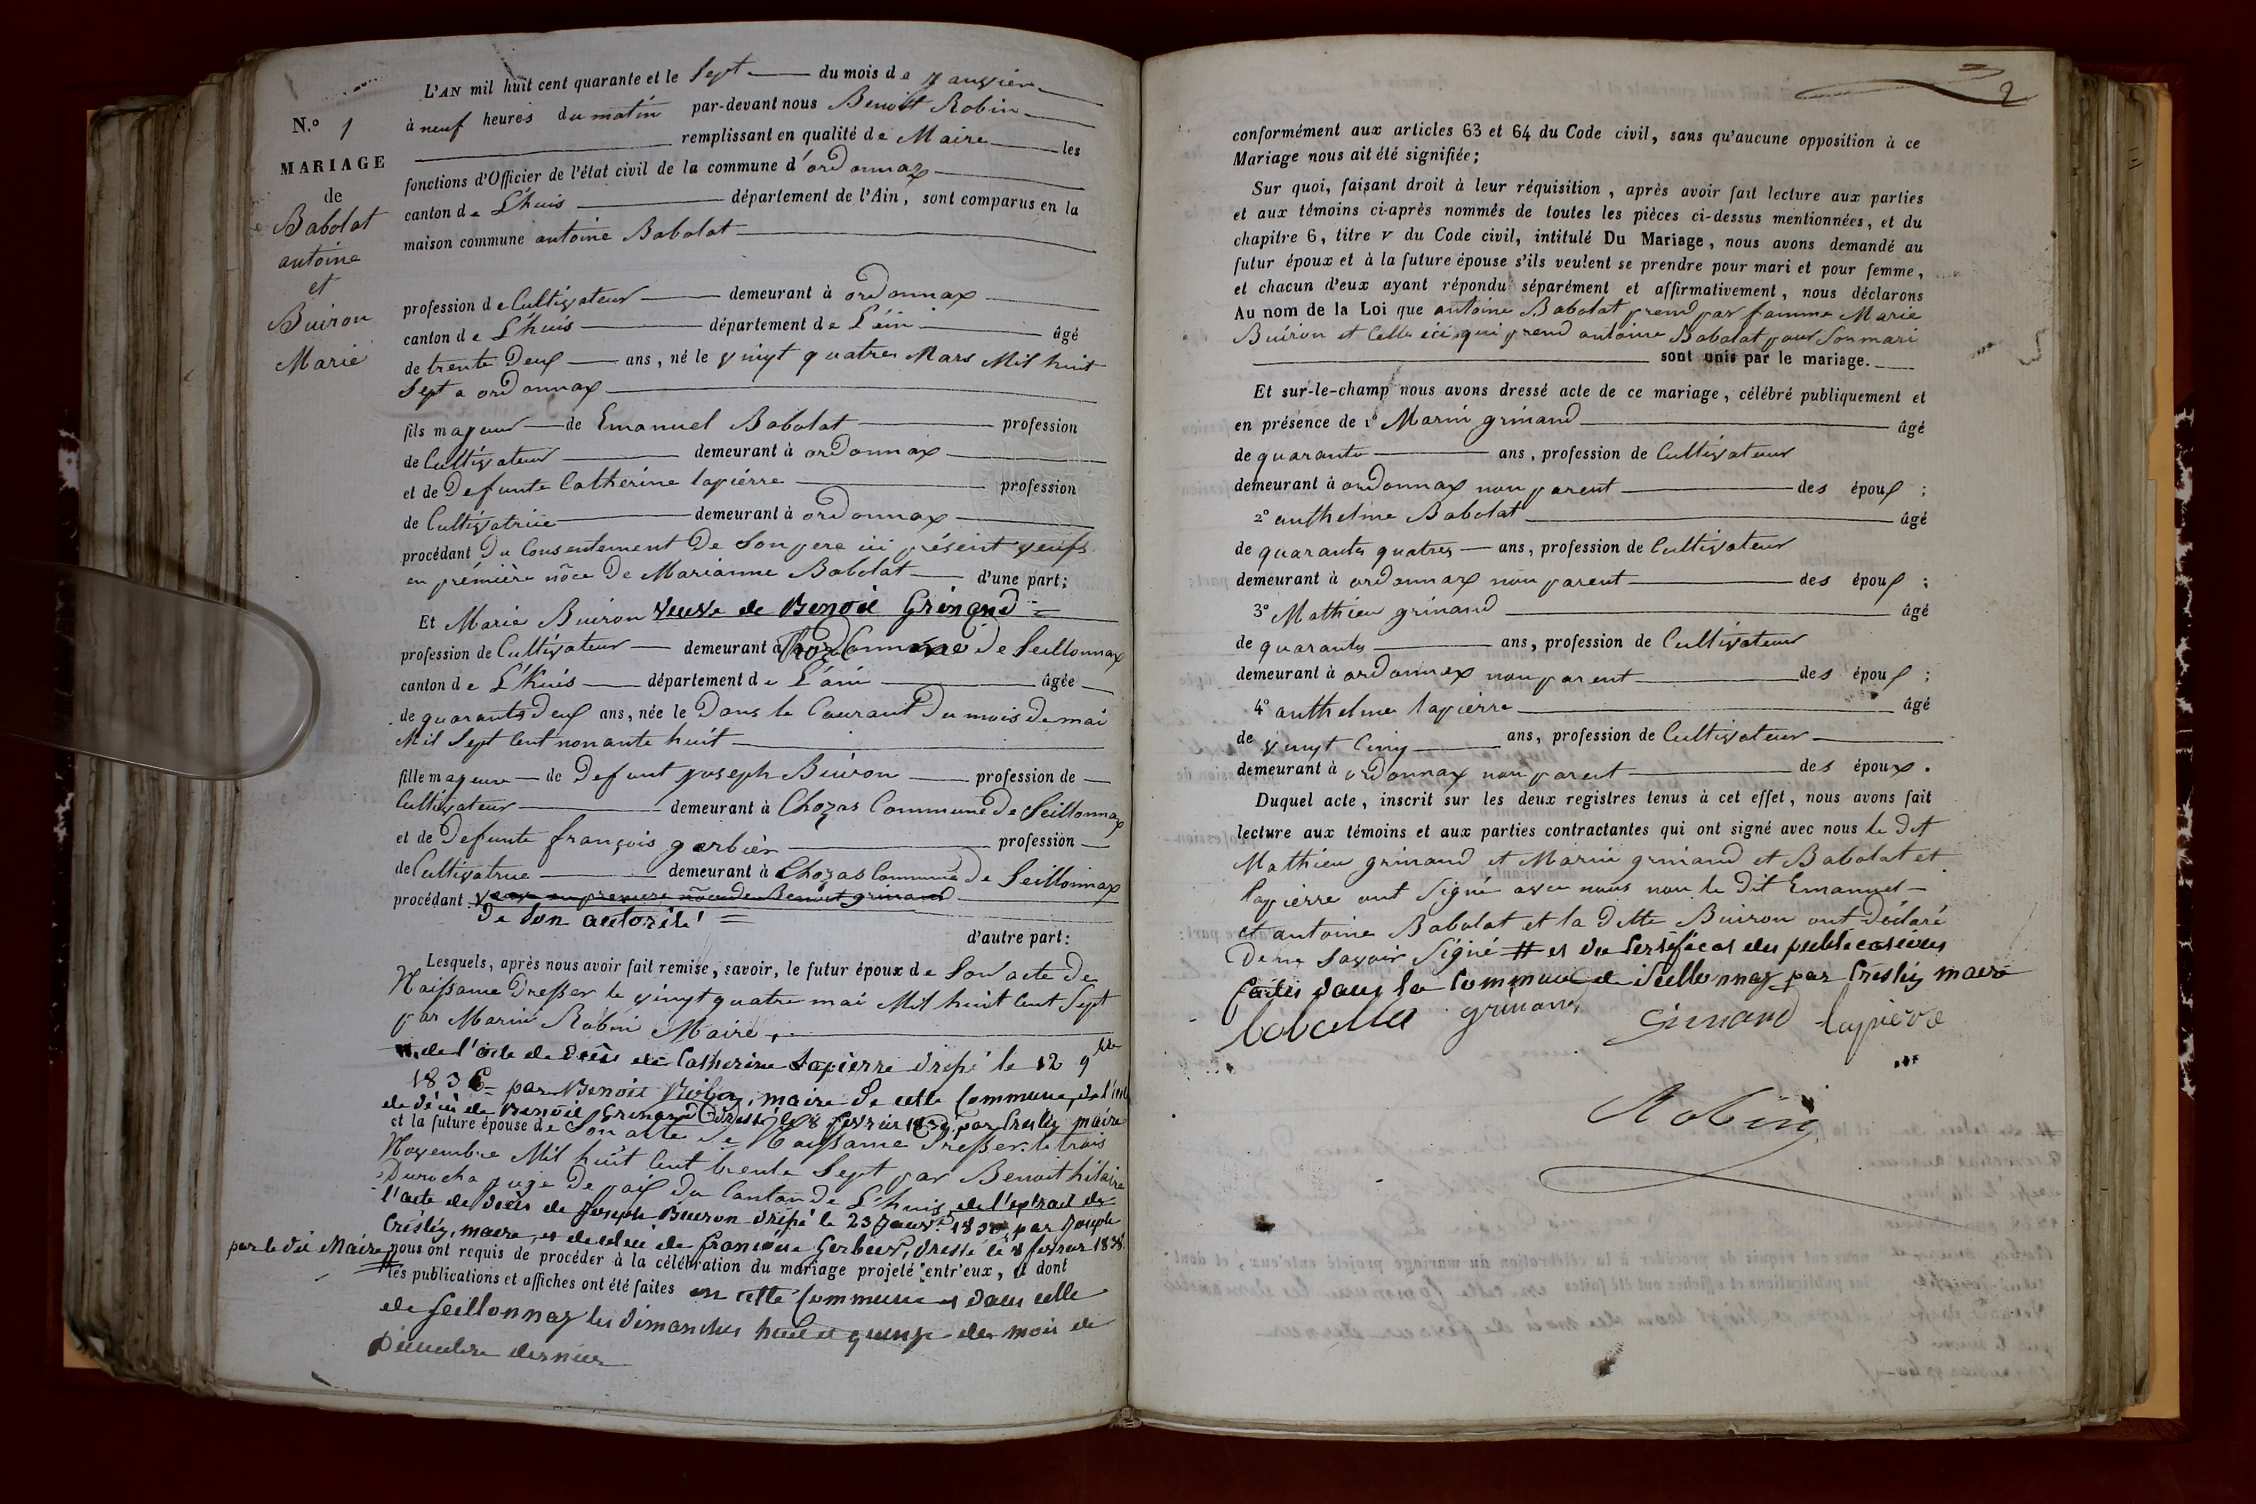 N.º 1
MARIAGE
de
Babolat
antoine
et
Buiron
Marie
L'AN mil huit cent quarante et le Sept du mois de Janvier
à neuf heures du matin par-devant nous Benoit Robin
remplissant en qualité de Maire les
fonctions d'Officier de l'état civil de la commune d'ordonnax
canton de L'huis département de l'Ain, sont comparus en la
maison commune antoine Babolat
profession de Cultivateur demeurant à ordonnax
canton de L'huis département de L'ain âgé
de trente deux ans, né le vingt quatre Mars Mil huit
Sept a ordonnax
fils majeur de Emanuel Babolat profession
de Cultivateur demeurant à ordonnax
et de Defunte Catherine lapierre profession
de Cultivatrice demeurant à ordonnax
procédant Du Consentement De Son pere ici présent veufs
en première nôce De Marianne Babolat d'une part;
Et Marie Buiron veuve de Benoit Grinand
profession de Cultivateur demeurant à De Seillonnax
canton de L'Huis département de L'ain âgée
de quarante deux ans, née le Dans le Courant Du mois De mai
Mil Sept Cent nonante huit
fille majeure de Defunt joseph Buiron profession de
Cultivateur demeurant à Chozas Commune De Seillonnax
et de Defunte françois gerbier profession
de Cultivatrice demeurant à Chozas Commune De Seillonnax
procédant veuve en premiere nôce de Benoit grinand
De Son autorité
d'autre part:
Lesquels, après nous avoir fait remise, savoir, le futur époux de Son acte De
Naissance Dresser le vingt quatre mai Mil huit Cent Sept
par Marin Robin Maire,
de l'acte de décès de Catherine Lapierre dressé le 12 9bre
1836 par Benoit Robin, maire de cette Commune, de l'acte
de décès de Benoit Grinand dressé le 8 fevrier 1839 par Crestin maire
et la future épouse de Son acte De Naissance Dresser le trois
Novembre Mil huit Cent trente Sept par Benoit hilaire
Durocha juge De paix Du Canton De L'huis, de l'extrait de
l'acte de décès de Joseph Buiron dressé le 23 Janv. par Joseph
Crestin, maire, et de celui de françoise Gerbier, dressé le 8 fevrier 1838
par le dit Maire nous ont requis de procéder à la célébration du mariage projeté entr'eux, et dont
les publications et affiches ont été faites en cette Commune et dans celle
de Seillonnaz les dimanches huit et quinze du mois de
Décembre dernier
2
conformément aux articles 63 et 64 du Code civil, sans qu'aucune opposition à ce
Mariage nous ait été signifiée;
Sur quoi, faisant droit à leur réquisition, après avoir fait lecture aux parties
et aux témoins ci-après nommés de toutes les pièces ci-dessus mentionnées, et du
chapitre 6, titre v du Code civil, intitulé Du Mariage, nous avons demandé au
futur époux et à la future épouse s'ils veulent se prendre pour mari et pour femme,
et chacun d'eux ayant répondu séparément et affirmativement, nous déclarons
Au nom de la Loi que antoine Babolat prend par famme Marie
Buiron et Celle ici qui prend antoine Babolat pour Son mari
sont unis par le mariage.
Et sur-le-champ nous avons dressé acte de ce mariage, célébré publiquement et
en présence de 1º Marin grinand âgé
de quarante ans, profession de Cultivateur
demeurant à ordonnax non parent des époux;
2º anthelme Babolat âgé
de quarante quatres ans, profession de Cultivateur
demeurant à ordonnax non parent des époux;
3º Mathieu grinand âgé
de quarante ans, profession de Cultivateur
demeurant à ordonnax non parent des époux;
4º anthelme lapierre âgé
de vingt Cinq ans, profession de Cultivateur
demeurant à ordonnax non parent des époux.
Duquel acte, inscrit sur les deux registres tenus à cet effet, nous avons fait
lecture aux témoins et aux parties contractantes qui ont signé avec nous le Dit
Mathieu grinand et Marin grinand et Babolat et
lapierre ont Signé avec nous non le Dit Emanuel
et antoine Babolat et la Ditte Buiron ont Déclaré
De ne Savoir Signé # et du Certificat des publications
faites dans la Commune de Seillonnaz par Crestin maire
grinand Grinand lapierre
Robin